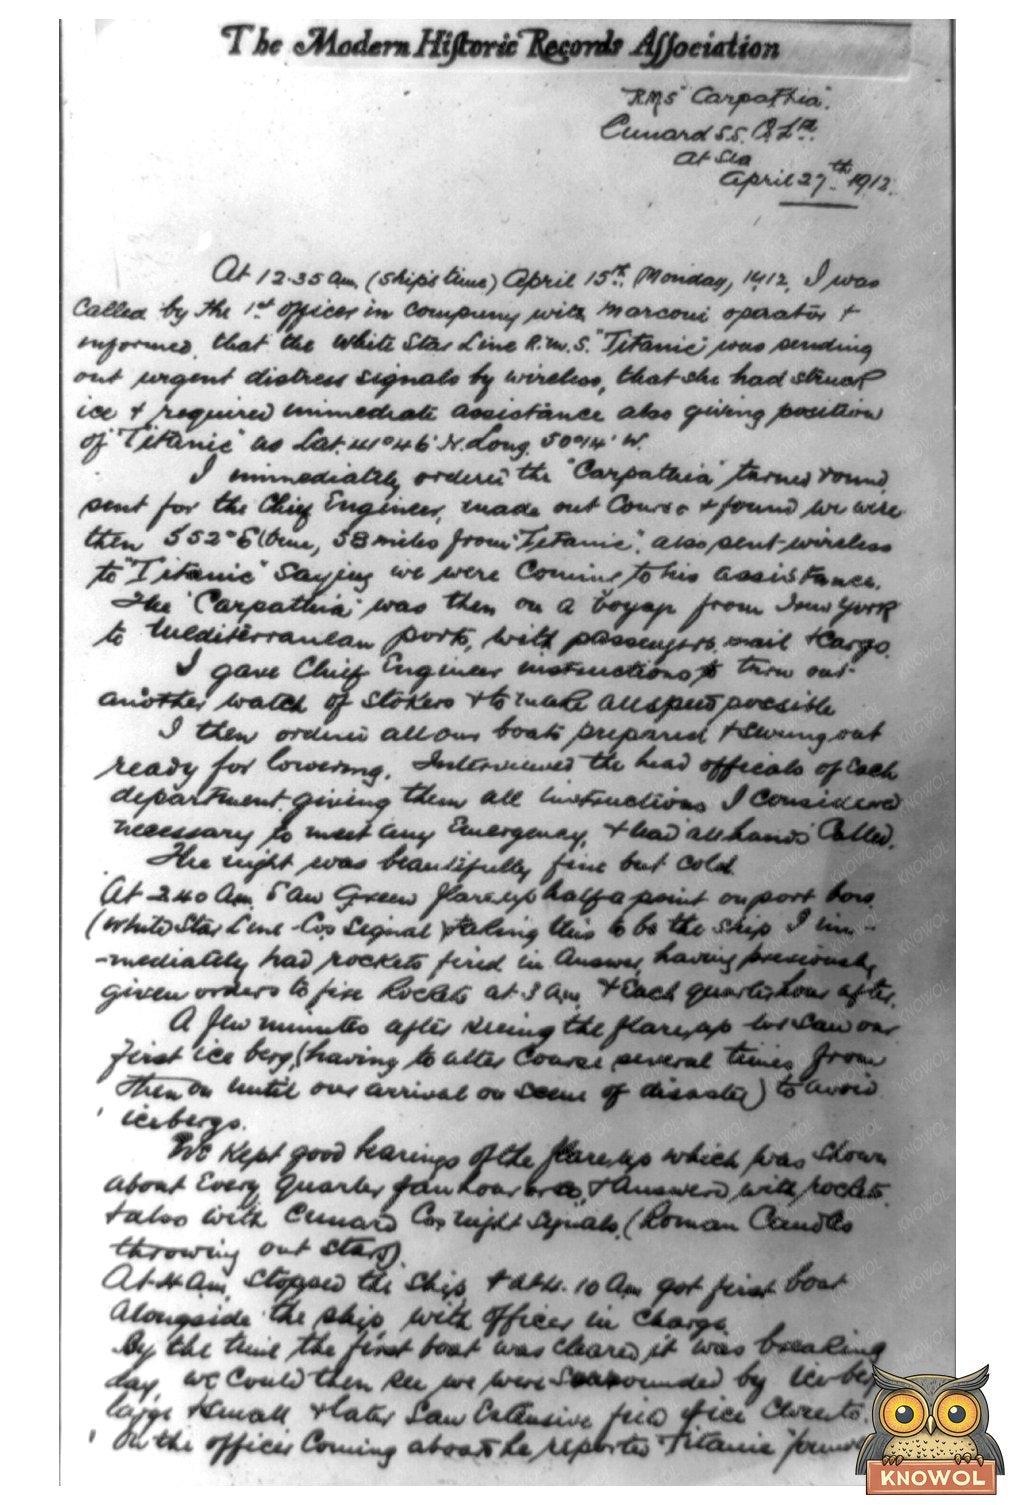 The Modern Historic Records Association
"R.M.S. "Carpathia".
Cunard S.S. Co. Ltd.
At Sea
April 27th 1912.
At 12.35 am. (ship's time) April 15th. Monday, 1912, I was
called by the 1st officer in company with marconi operator +
informed, that the White Star Line R.M.S. "Titanic" was sending
out urgent distress signals by wireless, that she had struck
ice + required immediate assistance also giving position
of "Titanic" as Lat. 41°46' N. Long. 50°14' W.
I immediately ordered the "Carpathia" turned round,
sent for the Chief Engineer, made out Course + found we were
then S 52° E (true, 58 miles from "Titanic", also sent wireless
to "Titanic" saying we were coming to his assistance.
The "Carpathia" was then on a voyage from New York
to Mediterranean ports, with passengers, mail + Cargo.
I gave Chief Engineer instructions to turn out
another watch of stokers + to make all speed possible
I then ordered all our boats prepared + swung out
ready for lowering. Interviewed the head officials of each
department, giving them all instructions I considered
necessary to meet any Emergency, + had "all hands" called.
The night was beautifully fine but cold
At 2.40 am. Saw Green flare up half a point on port bow
(White Star Line Cos Signal) taking this to be the ship I im-
-mediately had rockets fired in answer, having previously
given orders to fire Rockets at 3 am. + Each quarter hour after.
A few minutes after seeing the flare up we saw our
first ice berg, (having to alter Course several times from
then on until our arrival on scene of disaster) to avoid
icebergs.
We kept good bearings of the flare up which was shown
about Every quarter of an hour or so, + Answered with rockets
+ also with Cunard Cos night signals. (Roman Candles
throwing out stars).
At 4 am. stopped the ship, + at 4.10 am got first boat
alongside the ship, with officer in charge
By the time the first boat was cleared it was breaking
day, we could then see we were surrounded by
large + small + later saw Extensive field ice
On the officer coming aboard he reported "Titanic"
KNOWOL